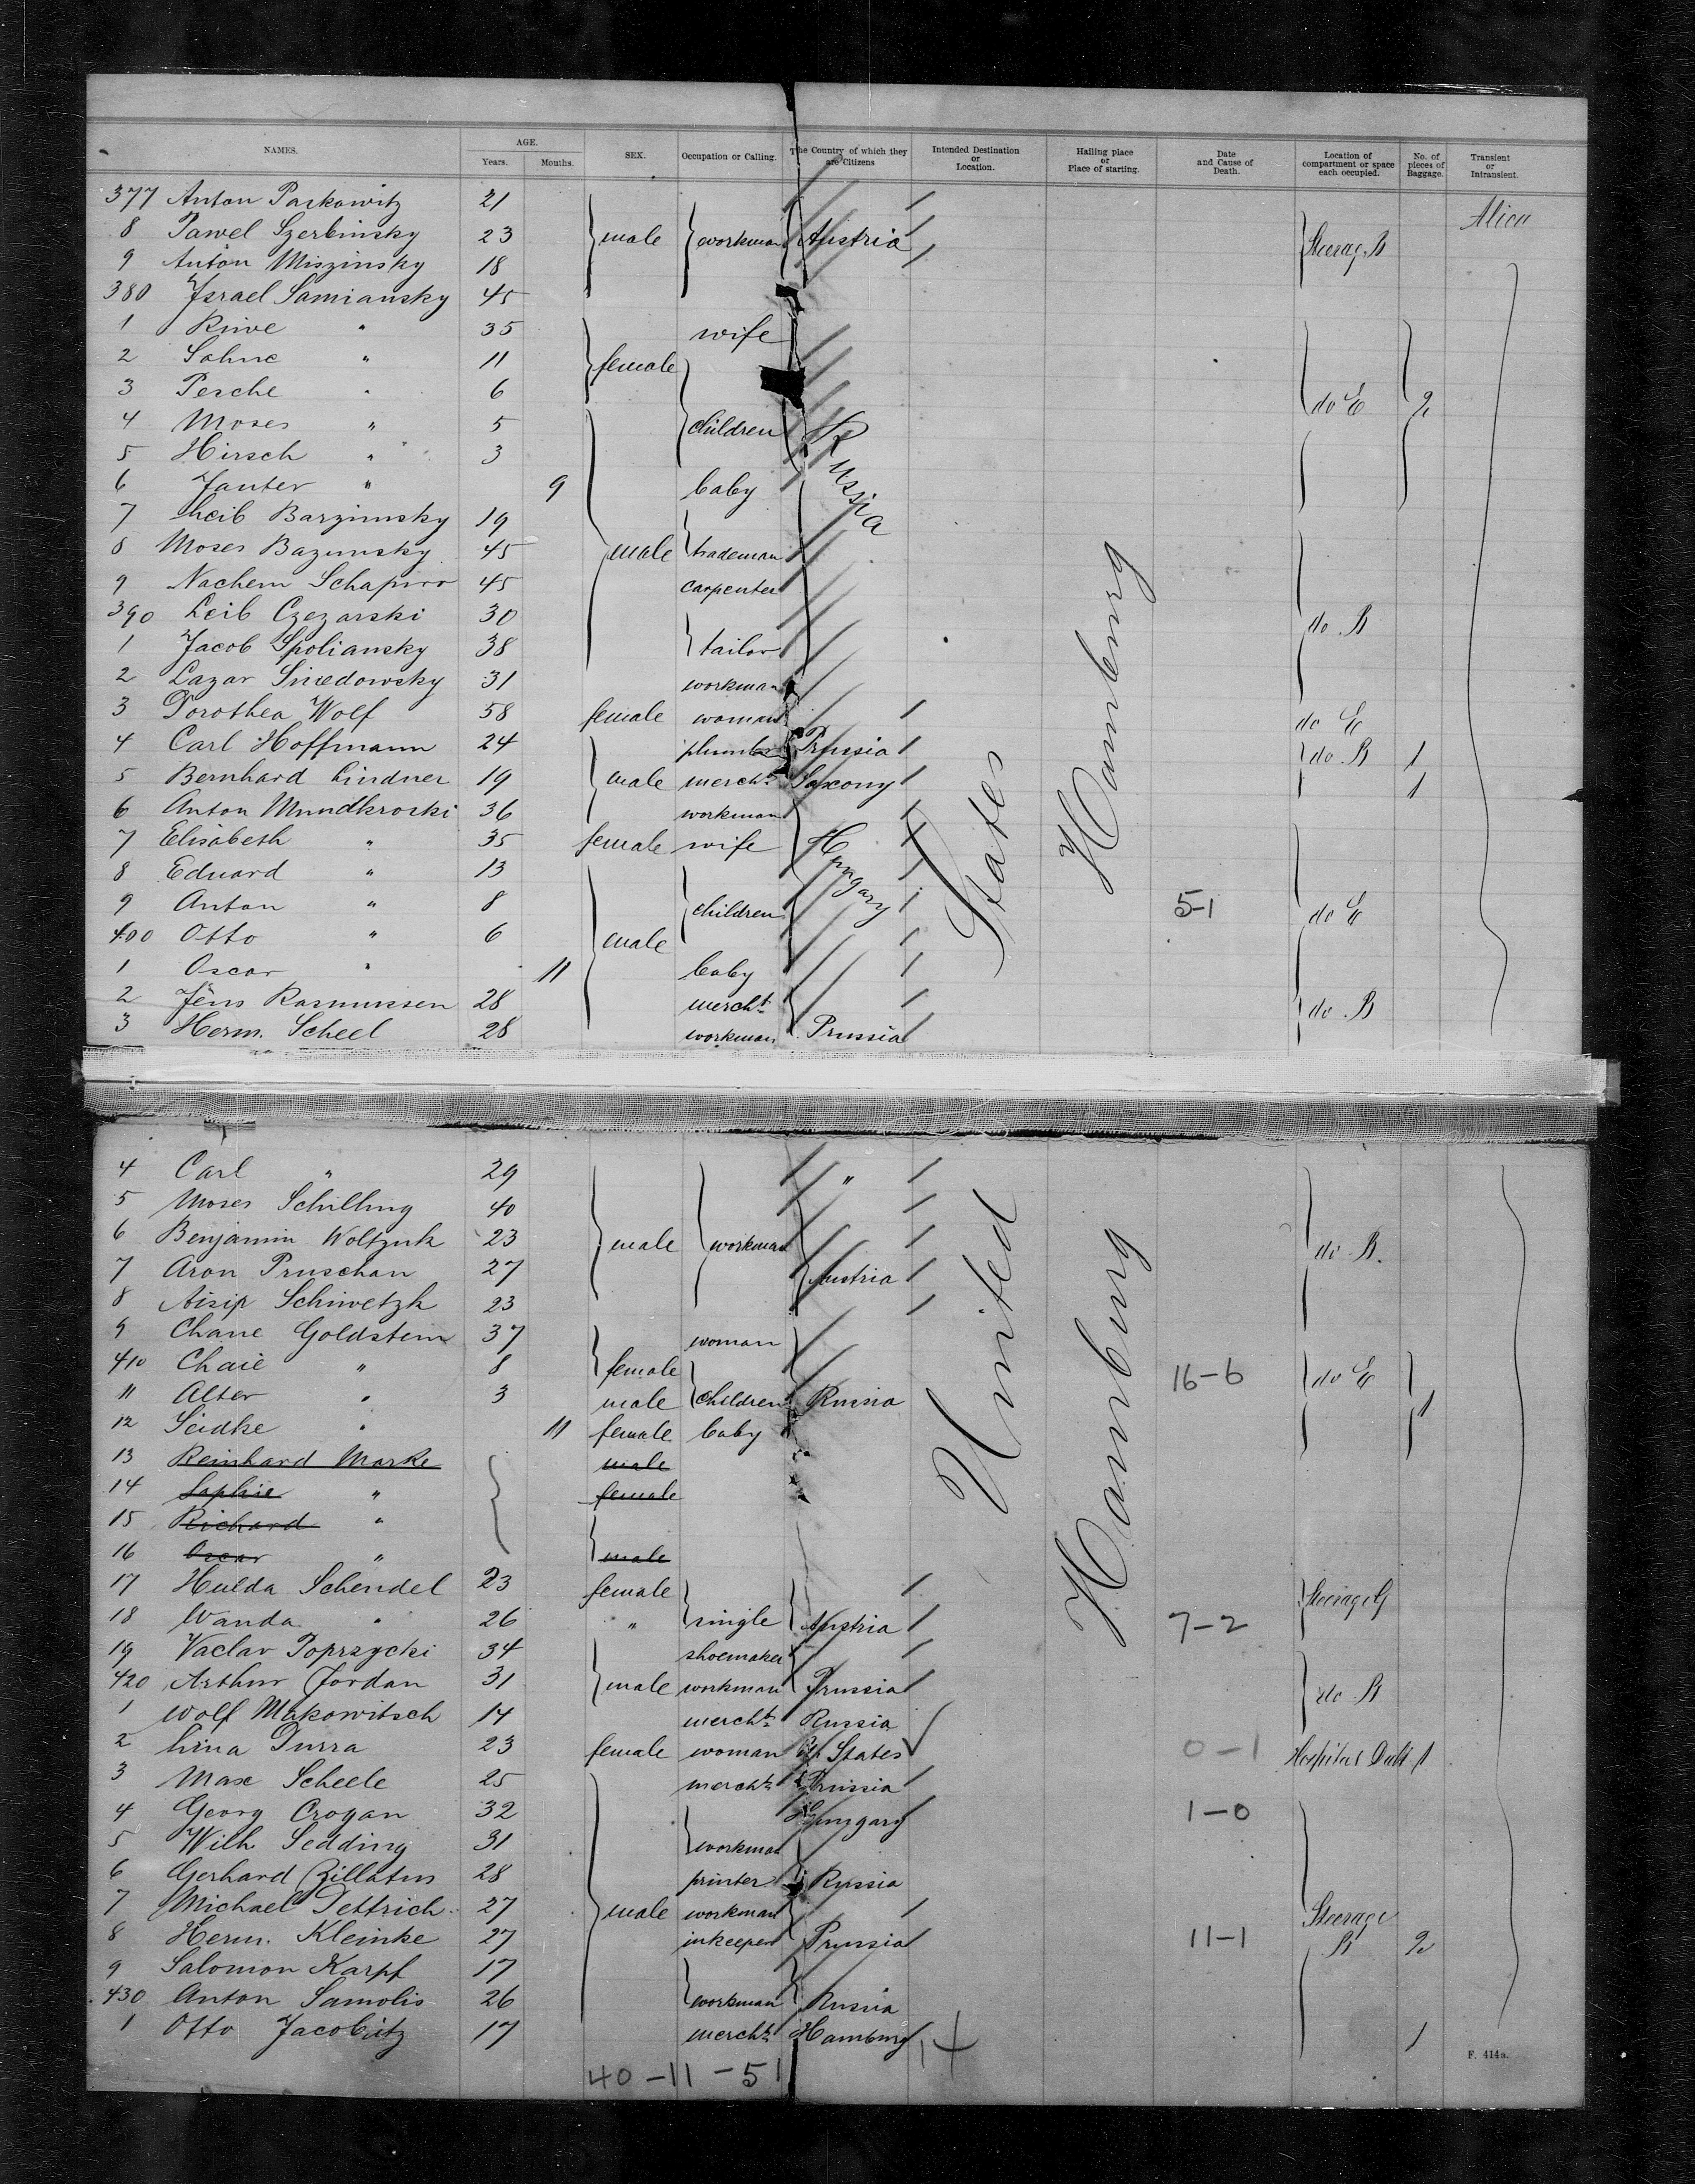 NAMES. AGE. Years. Months. SEX. Occupation or Calling. The Country of which they are Citizens Intended Destination or Location. Hailing place or Place of starting. Date and Cause of Death. Location of compartment or space each occupied. No. of pieces of Baggage. Transient or Intransient.
377 Anton Paskowitz 21
8 Pawel Szerbinsky 23 male workman Austria Steerag. B
9 Anton Miszinsky 18
380 Israel Samiansky 45
1 Riwe " 35 wife
2 Sohne " 11 female
3 Pesche " 6 do E 2
4 Moses " 5 children Russia
5 Hirsch " 3
6 Janter " 9 baby
7 Leib Barzimsky 19
8 Moses Bazunsky 45 male trademan
9 Nachem Schapiro 45 carpenter
390 Leib Czezarski 30 do B
1 Jacob Spoliansky 38 tailor
2 Lazar Smedowsky 31 workman
3 Dorothea Wolf 58 female woman do E
4 Carl Hoffmann 24 plumber Prussia do B 1
5 Bernhard Lindner 19 male mercht. Saxony 1
6 Anton Mundkroski 36 workman
7 Elisabeth " 35 female wife Hungary
8 Eduard " 13
9 Anton " 8 children 5-1 do E
400 Otto " 6 male
1 Oscar " 11 baby
2 Jens Rasmussen 28 mercht. do B
3 Herm. Scheel 28 workman Prussia
States
Hamburg
4 Carl " 29 "
5 Moses Schilling 40
6 Benjamin Woltzuk 23 male workman do B.
7 Aron Pruschan 27 Austria
8 Aisip Schiwetzk 23
9 Chane Goldstein 37 woman
410 Chaie " 8 female 16-6 do E
11 Alter " 3 male children Russia 1
12 Seidke " 11 female baby
13 Reinhard Marke male
14 Sophie " female
15 Richard "
16 Oscar " male
17 Hulda Schendel 23 female Steerage G
18 Wanda " 26 " single Austria 7-2
19 Vaclav Poprzycki 34 shoemaker
420 Arthur Jordan 31 male workman Prussia do B
1 Wolf Makowitsch 14 mercht. Russia
2 Lina Durra 23 female woman States 0-1 Hospital
3 Max Scheele 25 mercht. Prussia
4 Georg Crogan 32 Hungary 1-0
5 Wilh Sedding 31 workman
6 Gerhard Zillatus 28 printer Russia
7 Michael Dettrich 27 male workman Steerage
8 Herm. Kleinke 27 inkeeper Prussia 11-1 B 2
9 Salomon Karpf 17
430 Anton Samolis 26 workman Russia
1 Otto Jacobitz 17 mercht. Hamburg 1
United
Hamburg
40-11-51
F. 414a.